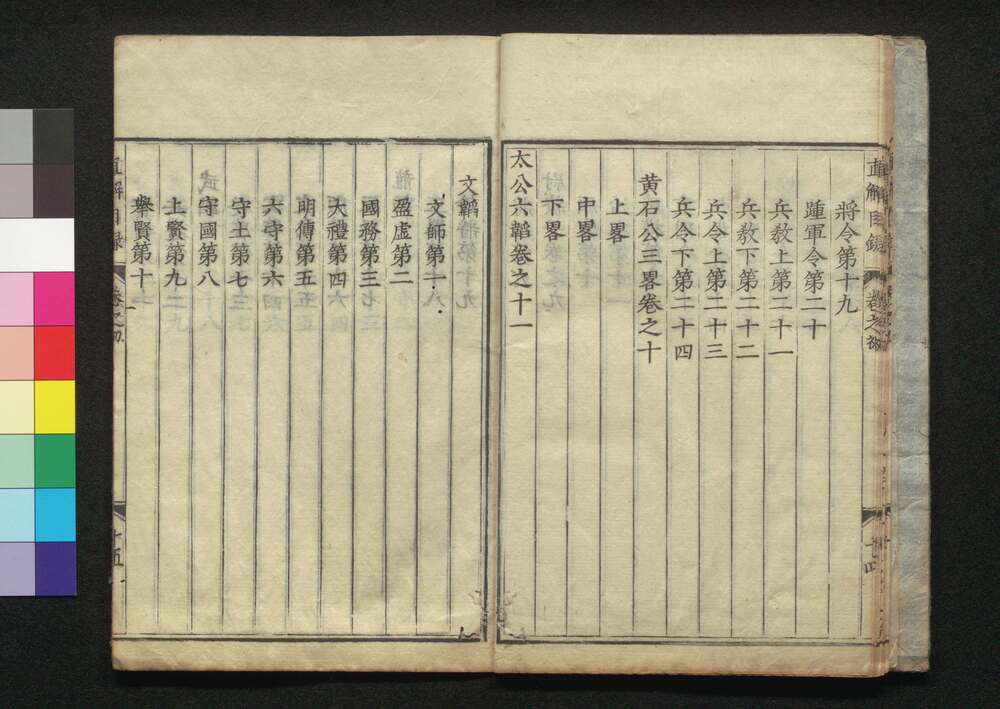 直解目錄 卷之初 十四
將令第十九
踵軍令第二十
兵敎上第二十一
兵敎下第二十二
兵令上第二十三
兵令下第二十四
黃石公三畧卷之十
上畧
中畧
下畧
太公六韜卷之十一
文韜
文師第一
盈虛第二
國務第三
大禮第四
明傳第五
六守第六
守土第七
守國第八
上賢第九
舉賢第十
直解目錄 卷之初 十五